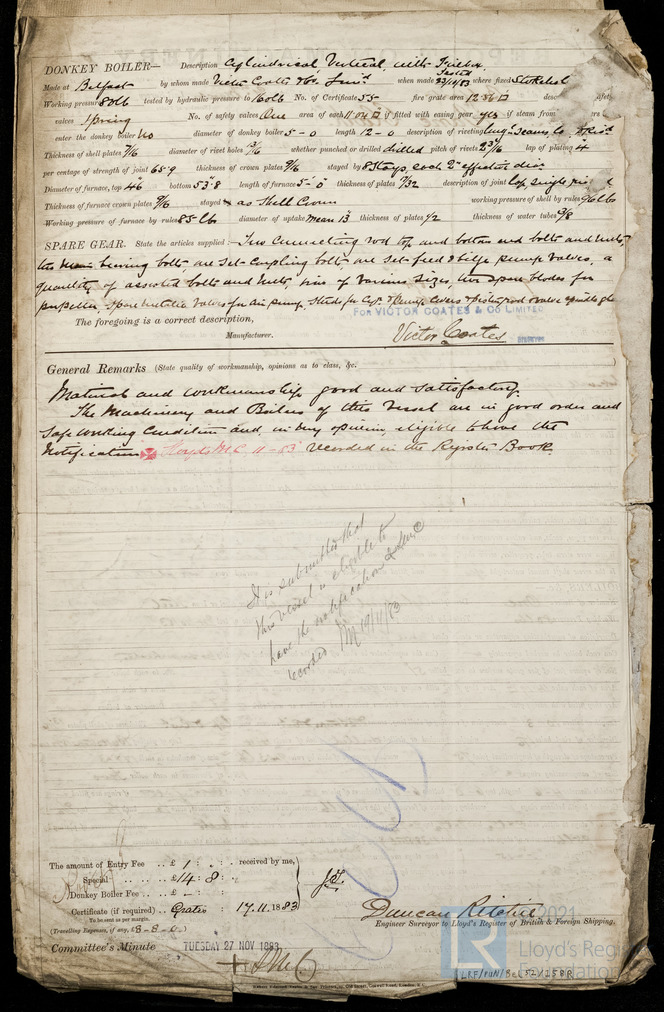 DONKEY BOILER— Description Cylindrical Vertical, with Firebox
Made at Belfast by whom made Victor Coates & Co. Limd when made Tested 23/10/83 where fixed Stokehold
Working pressure 80 lb tested by hydraulic pressure to 160 lb No. of Certificate 55 fire grate area 12.56 □
valves Spring No. of safety valves One area of each 11.04 □ if fitted with easing gear yes if steam from
enter the donkey boiler No diameter of donkey boiler 5-0 length 12-0 description of riveting
Thickness of shell plates 7/16 diameter of rivet holes whether punched or drilled drilled pitch of rivets lap of plating 4
per centage of strength of joint 65.9 thickness of crown plates 9/16 stayed by 8 Stays, each 2" effective dia
Diameter of furnace, top 46 bottom 53.8 length of furnace 5-0 thickness of plates description of joint lap, single
Thickness of furnace crown plates 9/16 stayed as Shell Crown working pressure of shell by rules 96 lb
Working pressure of furnace by rules 85 lb diameter of uptake Mean 13 thickness of plates 1/2 thickness of water tubes 3/8
SPARE GEAR. State the articles supplied Two Connecting rod top and bottom end bolts and nuts,
two Main bearing bolts, one set Coupling bolts, one set feed & bilge pump valves, a
quantity of assorted bolts and nuts, iron of various sizes, two spare blades for
propeller, spare metallic valves for air pump,
The foregoing is a correct description,
FOR VICTOR COATES & Co LIMITED
Manufacturer. Victor Coates
General Remarks (State quality of workmanship, opinions as to class, &c.
Material and workmanship good and satisfactory.
The Machinery and Boilers of this vessel are in good order and
safe working condition and, in my opinion, eligible to have the
Notification Lloyds MC 11-83 recorded in the Register Book.
It is submitted that
this vessel is eligible to
have the notification
recorded. 19/11/83
The amount of Entry Fee .. £ 1 : . : - received by me,
Special .. £ 14 : 8 : -
Donkey Boiler Fee .. £ - :
Certificate (if required) .. Gratis 17.11.1883
To be sent as per margin.
(Travelling Expenses, if any, £ 8-8-0)
Duncan Ritchie
Engineer Surveyor to Lloyd's Register of British & Foreign Shipping.
Committee's Minute TUESDAY 27 NOV 1883
+ LMC
© 2021
LR
Lloyd's Register
Foundation